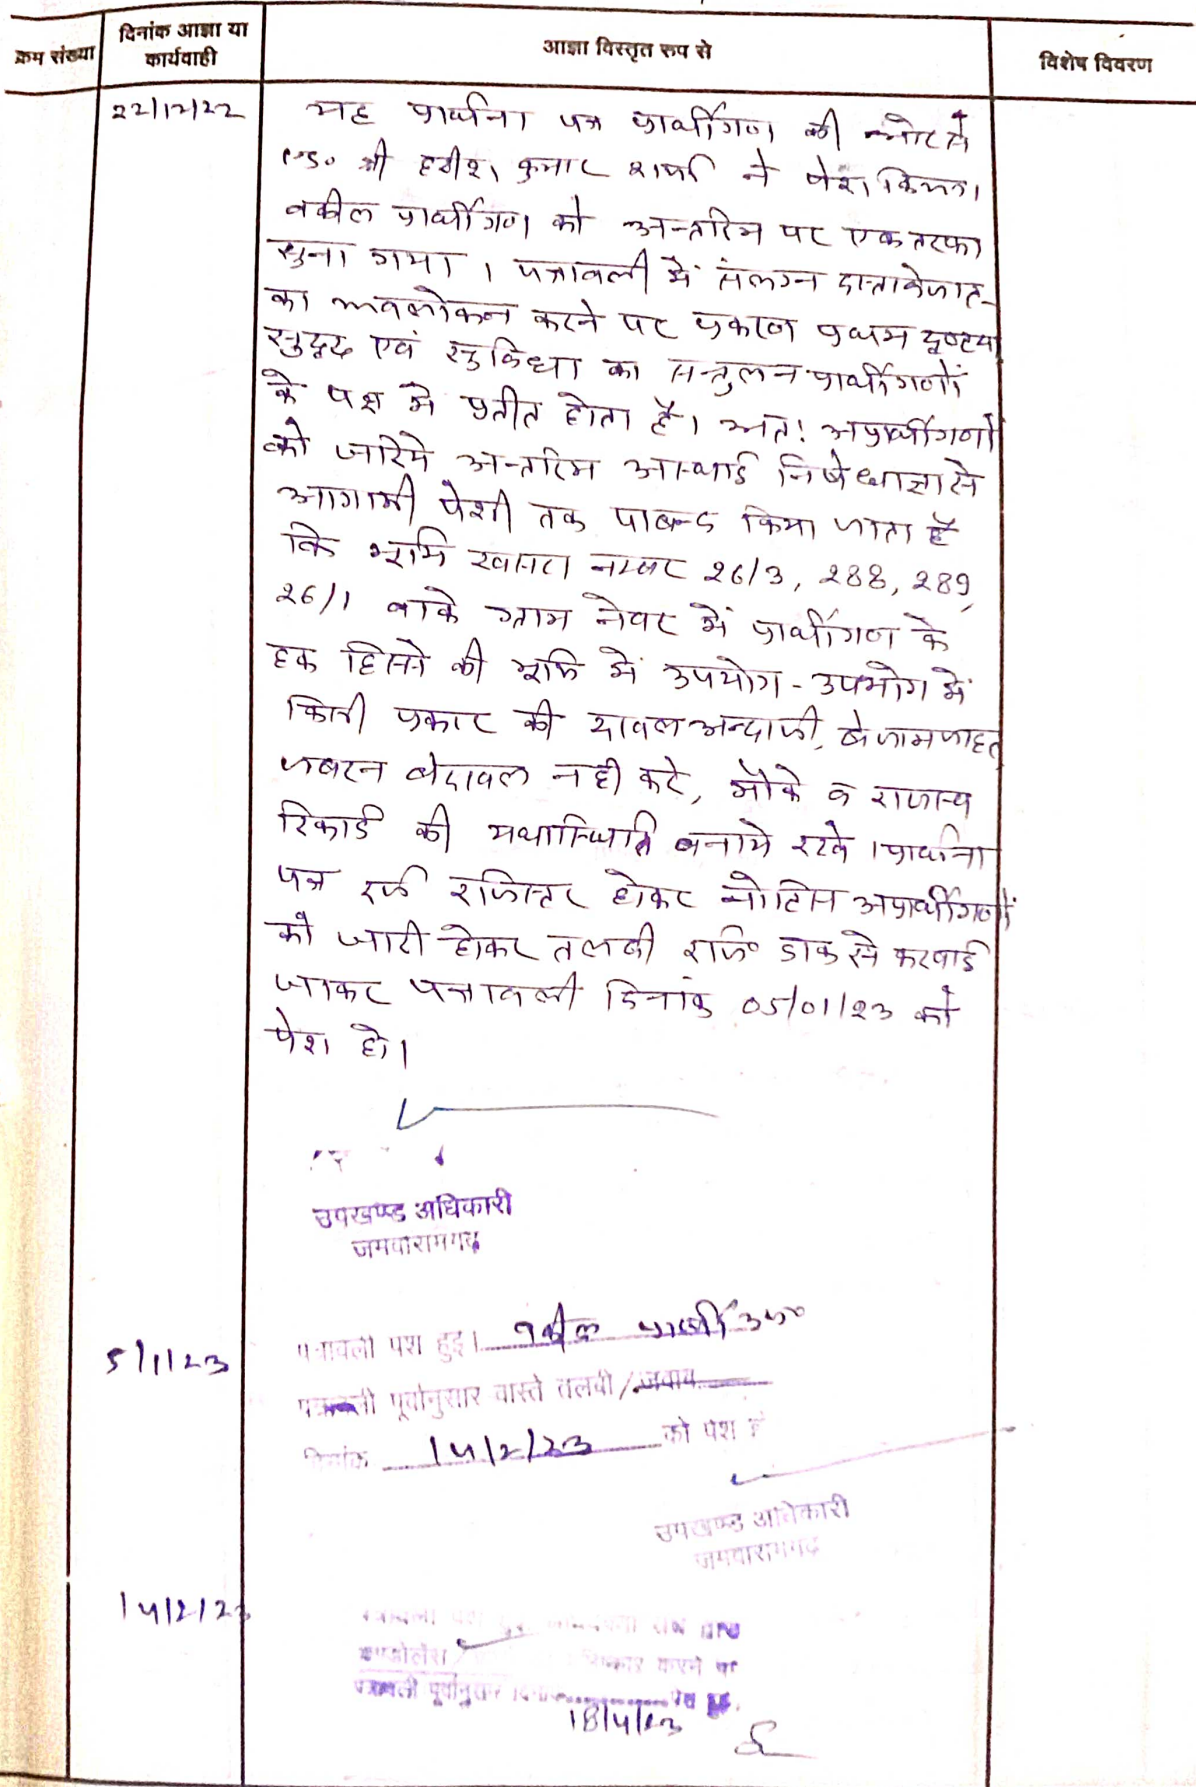 क्रम संख्या
दिनांक आज्ञा या
कार्यवाही
आज्ञा विस्तृत रुप से
विशेष विवरण
22/12/22
यह प्रार्थना पत्र प्रार्थीगण की ओर से
एड० श्री हरीश कुमार शर्मा ने पेश किया।
वकील प्रार्थीगण को अन्तरिम पर एक तरफा
सुना गया। पत्रावली में संलग्न दास्तावेजात
का अवलोकन करने पर प्रकरण प्रथम दृष्टया
सुदृढ एवं सुविधा का सन्तुलन प्रार्थीगणों
के पक्ष मे प्रतीत होता है। अतः अप्रार्थीगणों
को जरिये अन्तरिम अस्थाई निषेधाज्ञा से
आगामी पेशी तक पाबन्द किया जाता है
कि भूमि खसरा नम्बर 26/3, 288, 289,
26/1 वाके ग्राम नेवर में प्रार्थीगण के
हक हिस्से की भूमि में उपयोग-उपभोग में
किसी प्रकार की दखलअन्दाजी, बेजामजाहत
जबरन बेदखल नही करे, मौके व राजस्व
रिकार्ड की यथास्थिति बनाये रखे। प्रार्थना
पत्र दर्ज रजिस्टर होकर नोटिस अप्रार्थीगणों
को जारी होकर तलबी रजि० डाक से करवाई
जाकर पत्रावली दिनांक 05/01/23 को
पेश हो।
उपखण्ड अधिकारी
जमवारामगढ
5/1/23
पत्रावली पेश हुई। वकील प्रार्थी उप०
पत्रावली पूर्वानुसार वास्ते तलवी/जवाब
दिनांक 14/2/23 को पेश हो
उपखण्ड अधिकारी
जमवारामगढ
14/2/23
पत्रावली पेश हुई
कण्डोलेंस करने पर
पत्रावली पूर्वानुसार दिनांक पेश हो
18/4/23